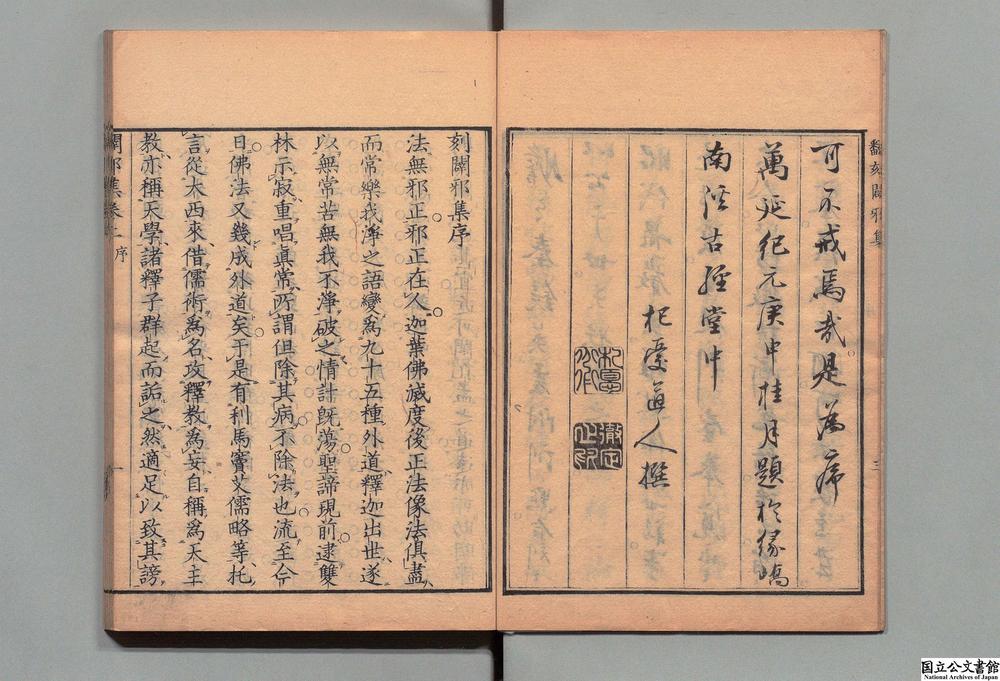 翻刻闢邪集
三
可不戒焉哉是為序
萬延紀元庚申桂月題於緣嶠
南溪古經堂中
杞憂道人撰
徹定之印
刻闢邪集序
法無邪正邪正在人迦葉佛滅度後正法像法俱盡
而常樂我淨之語變爲九十五種外道釋迦出世遂
以無常苦無我不淨破之情計旣蕩聖諦現前逮雙
林示寂重唱眞常所謂但除其病不除法也流至今
日佛法又幾成外道矣于是有利馬竇艾儒略等托
言從大西來借儒術爲名攻釋教爲妄自稱爲天主
教亦稱天學諸釋子群起而詬之然適足以致其謗
闢邪集卷上 序
一
国立公文書館
National Archives of Japan